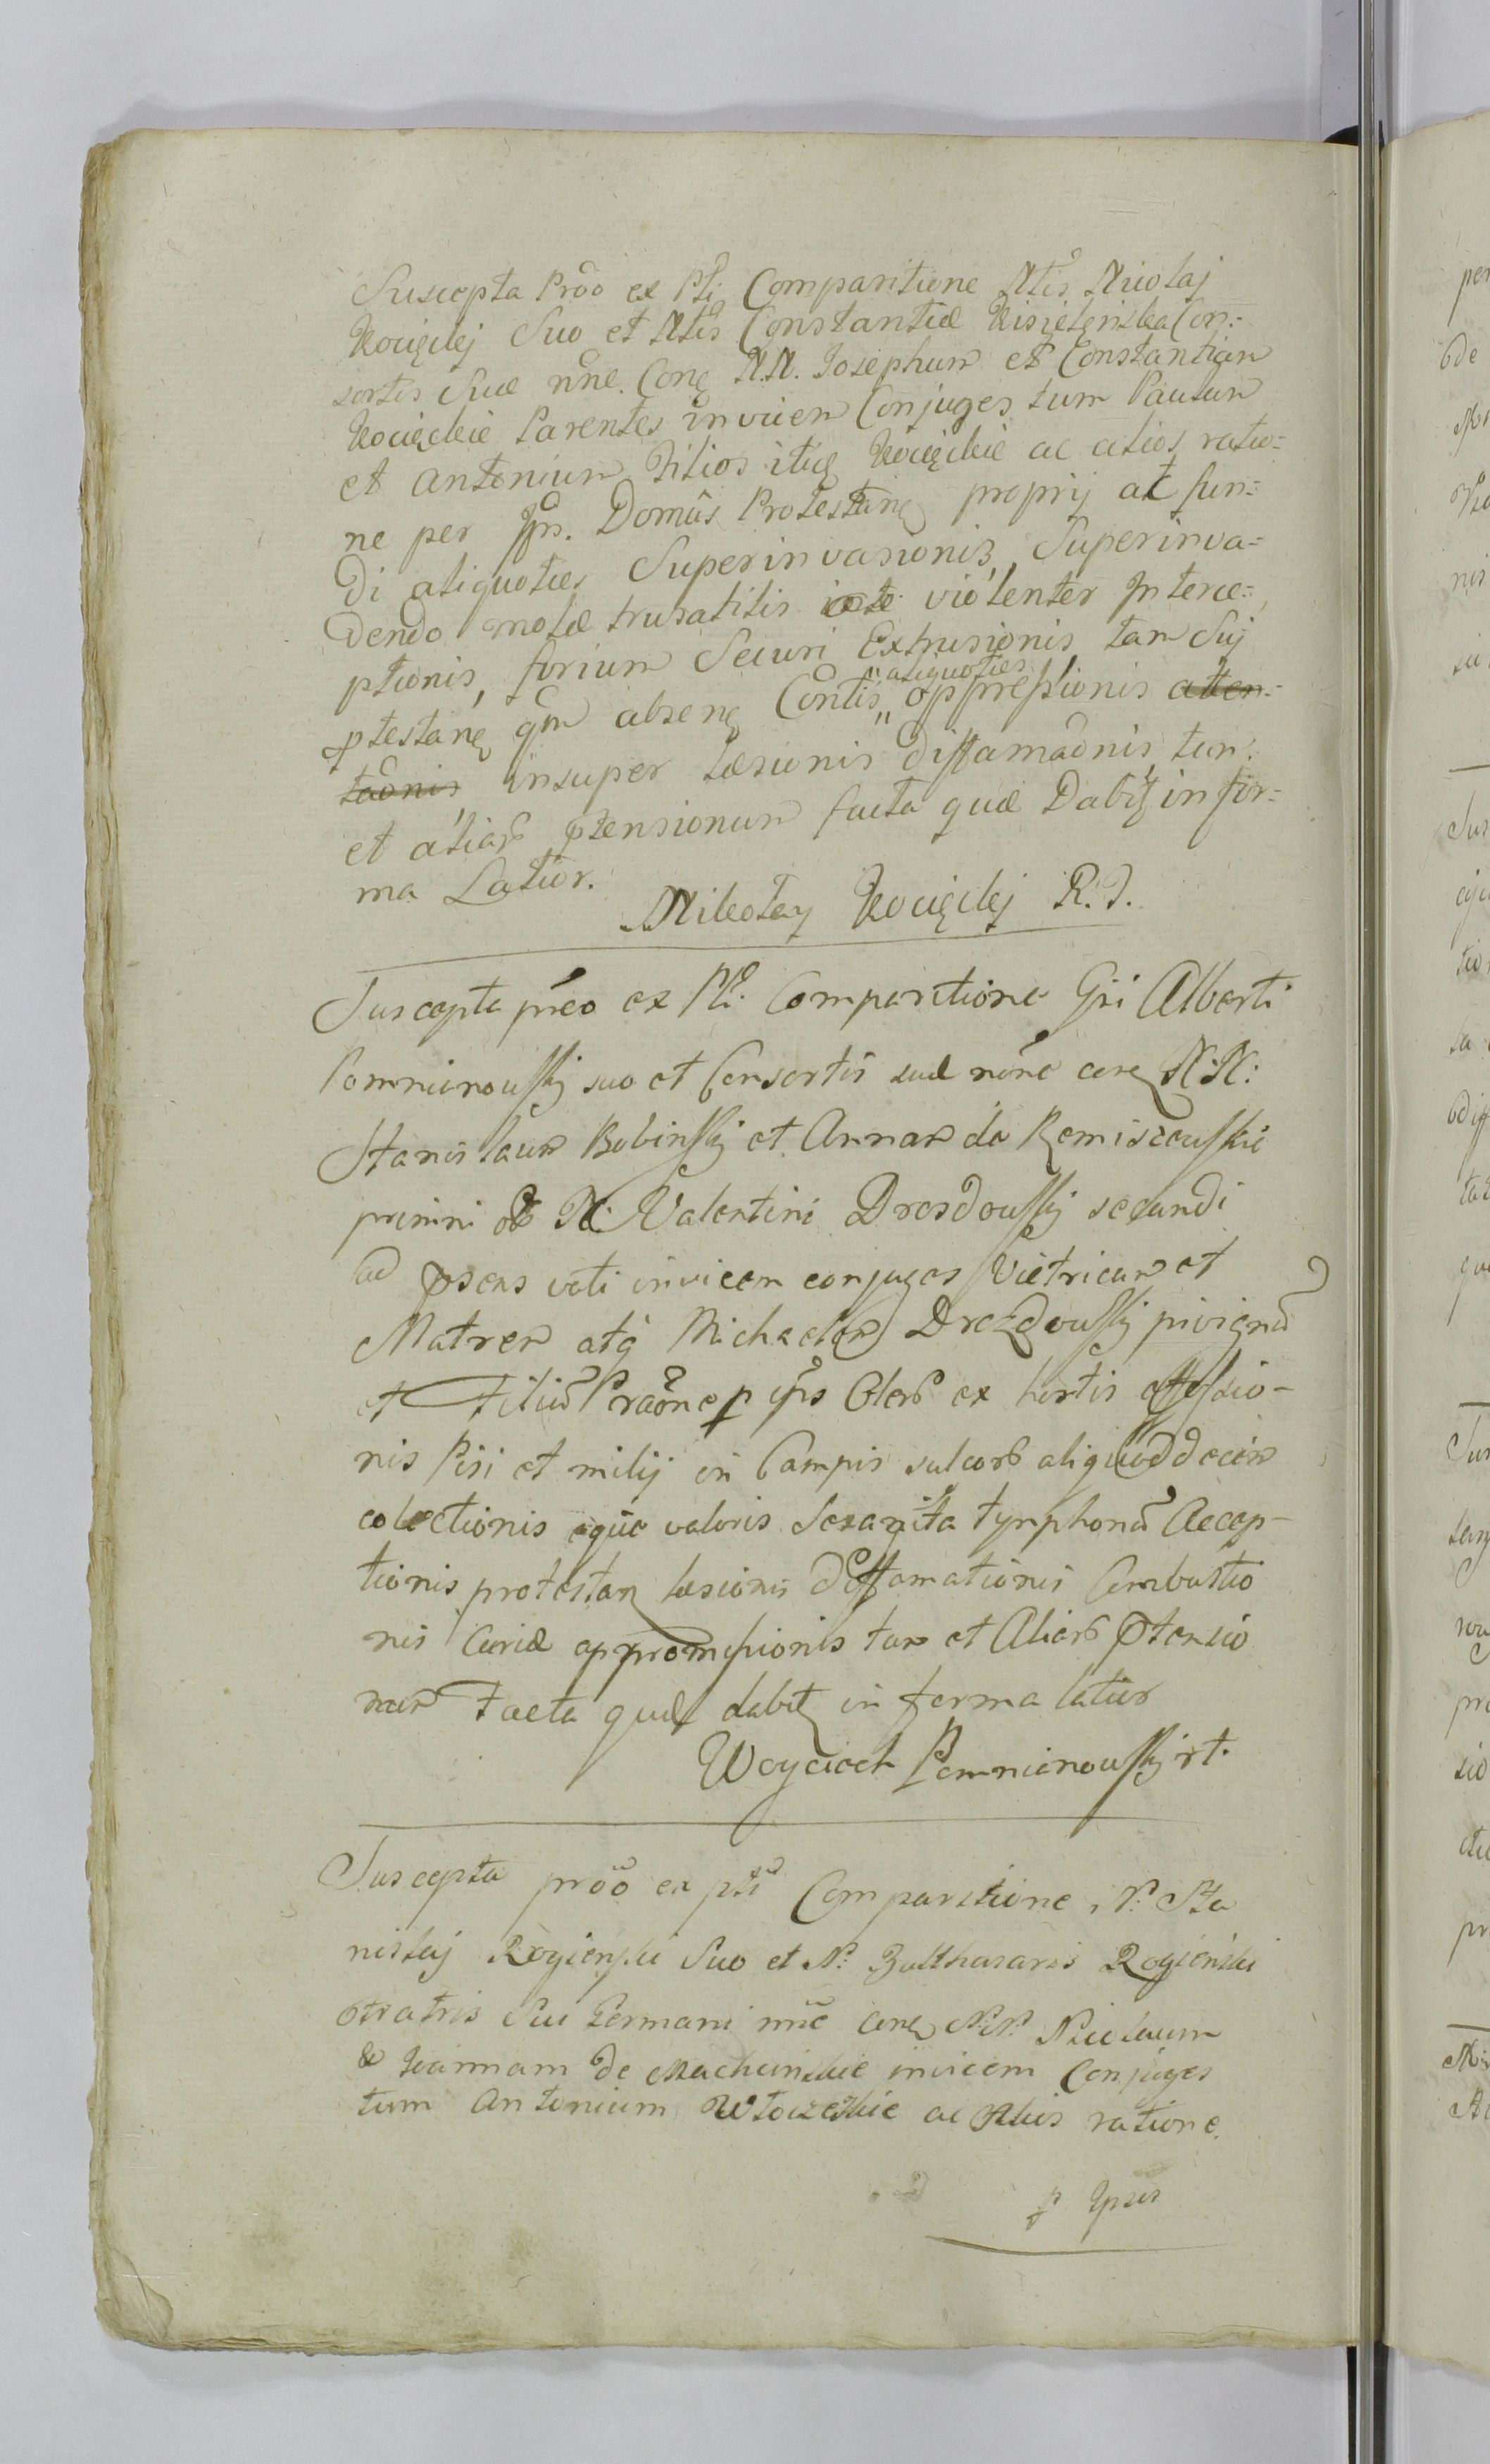 Suscepta Prõo ex Pti Comparitione Ntis Nicolaj
Kocięckj Suo et Ntis Constantiæ Kisielenska Con=
sortis Suæ nõne. Conę N.N. Josephum et Constantiam
Kocięckie Parentes invicem Conjuges tum Paulum
et Antonium Filios itię Kocięckie ac alios ratio=
ne per Ips. Domûs Protestanę proprij at fun=
di aliquoties Superinvasionis, Superinva=
dendo molæ trusatilis violenter Interce=
ptionis, forium Securi Extrusionis tam Sui
ptestanę qm absenę Contis "aliquoties" oppressionis atten=
taonis insuper læsionis diffamaõnis tum
et aliarb ptensionum facta quæ Dabitz in for=
ma Latior.
Mikołay Kocięckj R.T.
Suscepta prõo ex Pti. Comparitione Gsi Alberti
Pomnianowskj suo et Consortis suæ nõne conę N:N:
Stanislaum Bobinskj et Annam de Remiszewskie
primi ob N. Valentini Drozdowskj secundi
ad psens voti invicem conjuges Vietricum et
Matrem atq Michaelem Drozdowskj pivignũ
et Filiũ Praõne p ips Olerb ex hortis
nis Pisi et milij in Campis sulcorb aliquod decim
colectionis eque valoris Sexaginta tynphonũ Accep-
tionis protestan læsionis Deffamationis Combustio
nis Curiæ appromissionis tum et Aliarb Ptensio
num Facta quæ dabitz in forma latior
Woyciech Pomnianowskj rt.
Suscepta prõo ex pti Comparitione N: Sta
nislaj Rogienski Suo et N: Balthasaris Rogienski
Fratris Sui Germani nñe Conę N:N: Nicolaum
& Joannam de Machcinskie invicem Conjuges
tum Antonium Włoczeskie ac Alios ratione
p Ipsos